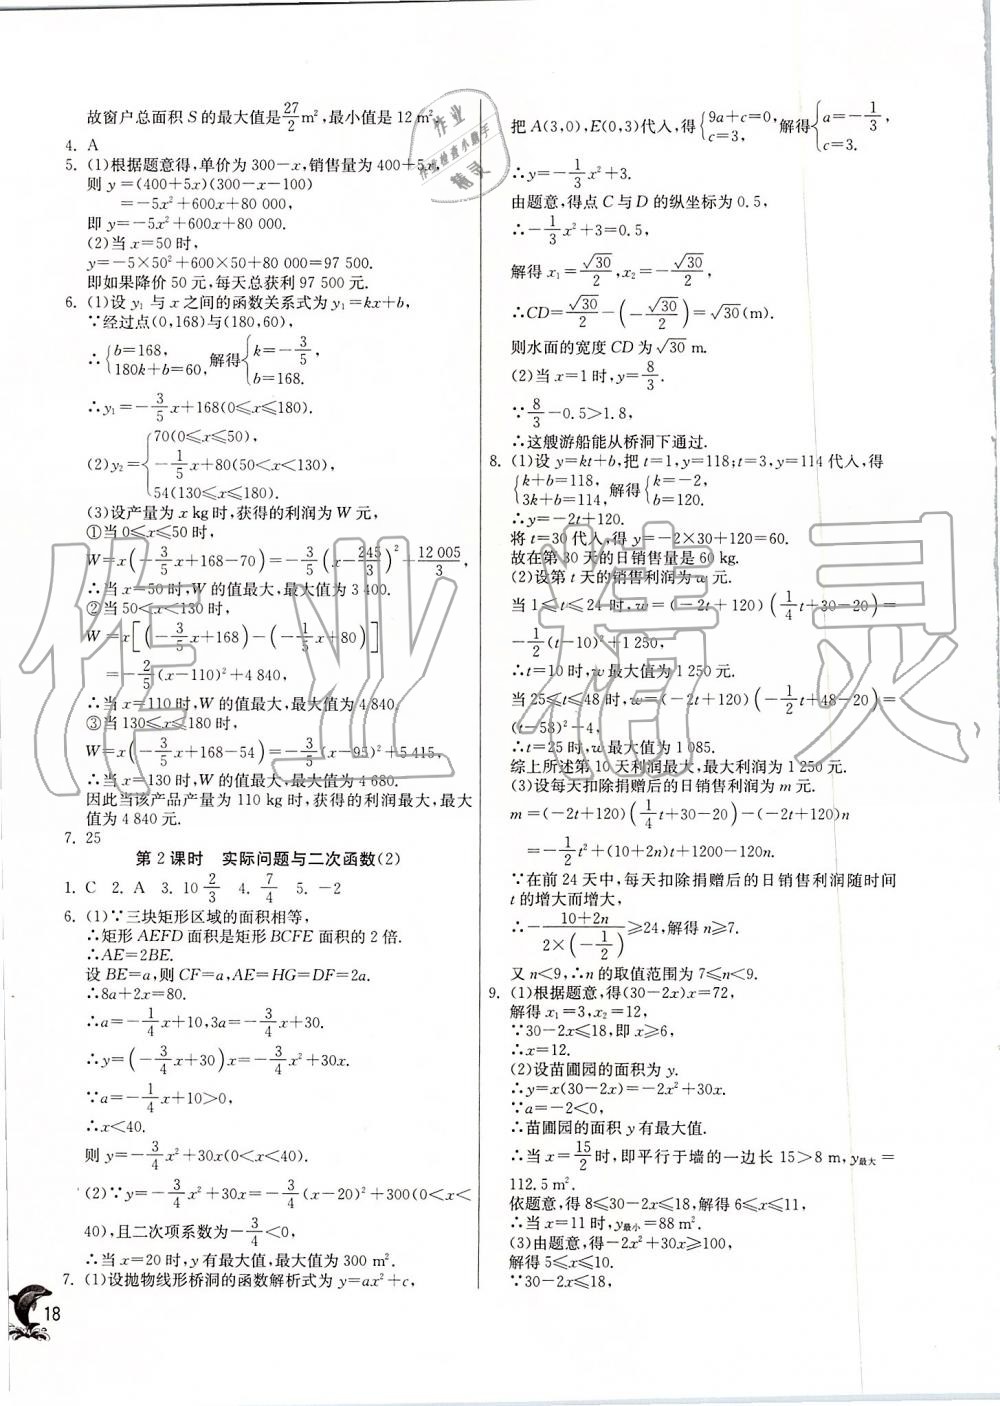 故窗户总面积 S 的最大值是27/2 m²,最小值是 12 m².
4. A
5. (1)根据题意得,单价为 300-x,销售量为 400+5x,
则 y=(400+5x)(300-x-100)
=-5x²+600x+80 000,
即 y=-5x²+600x+80 000.
(2)当 x=50 时,
y=-5×50²+600×50+80 000=97 500.
即如果降价 50 元,每天总获利 97 500 元.
6. (1)设 y₁ 与 x 之间的函数关系式为 y₁=kx+b,
∵经过点(0,168)与(180,60),
∴{b=168, 180k+b=60, 解得{k=-3/5, b=168.
∴y₁=-3/5x+168(0≤x≤180).
(2)y₂={70(0≤x≤50), -1/5x+80(50<x<130), 54(130≤x≤180).
(3)设产量为 x kg 时,获得的利润为 W 元,
①当 0≤x≤50 时,
W=x(-3/5x+168-70)=-3/5(x-245/3)²+12 005/3,
∴当 x=50 时,W 的值最大,最大值为 3 400.
②当 50<x<130 时,
W=x[(-3/5x+168)-(-1/5x+80)]
=-2/5(x-110)²+4 840,
∴当 x=110 时,W 的值最大,最大值为 4 840.
③当 130≤x≤180 时,
W=x(-3/5x+168-54)=-3/5(x-95)²+5 415,
∴当 x=130 时,W 的值最大,最大值为 4 680.
因此当该产品产量为 110 kg 时,获得的利润最大,最大
值为 4 840 元.
7. 25
第 2 课时 实际问题与二次函数(2)
1. C 2. A 3. 10 2/3 4. 7/4 5. -2
6. (1)∵三块矩形区域的面积相等,
∴矩形 AEFD 面积是矩形 BCFE 面积的 2 倍.
∴AE=2BE.
设 BE=a,则 CF=a,AE=HG=DF=2a.
∴8a+2x=80.
∴a=-1/4x+10,3a=-3/4x+30.
∴y=(-3/4x+30)x=-3/4x²+30x.
∵a=-1/4x+10>0,
∴x<40.
则 y=-3/4x²+30x(0<x<40).
(2)∵y=-3/4x²+30x=-3/4(x-20)²+300(0<x<
40),且二次项系数为-3/4<0,
∴当 x=20 时,y 有最大值,最大值为 300 m².
7. (1)设抛物线形桥洞的函数解析式为 y=ax²+c,
18
把 A(3,0),E(0,3)代入,得{9a+c=0, c=3, 解得{a=-1/3, c=3.
∴y=-1/3x²+3.
由题意,得点 C 与 D 的纵坐标为 0.5,
∴-1/3x²+3=0.5,
解得 x₁=√30/2,x₂=-√30/2,
∴CD=√30/2-(-√30/2)=√30(m).
则水面的宽度 CD 为√30 m.
(2)当 x=1 时,y=8/3.
∵8/3-0.5>1.8,
∴这艘游船能从桥洞下通过.
8. (1)设 y=kt+b,把 t=1,y=118;t=3,y=114 代入,得
{k+b=118, 3k+b=114, 解得{k=-2, b=120.
∴y=-2t+120.
将 t=30 代入,得 y=-2×30+120=60.
故在第 30 天的日销售量是 60 kg.
(2)设第 t 天的销售利润为 w 元.
当 1≤t≤24 时,w=(-2t+120)(1/4t+30-20)=
-1/2(t-10)²+1 250,
∴t=10 时,w 最大值为 1 250 元.
当 25≤t≤48 时,w=(-2t+120)(-1/2t+48-20)=
(t-58)²-4,
∴t=25 时,w 最大值为 1 085.
综上所述第 10 天利润最大,最大利润为 1 250 元.
(3)设每天扣除捐赠后的日销售利润为 m 元.
m=(-2t+120)(1/4t+30-20)-(-2t+120)n
=-1/2t²+(10+2n)t+1200-120n.
∵在前 24 天中,每天扣除捐赠后的日销售利润随时间
t 的增大而增大,
∴-(10+2n)/(2×(-1/2))≥24,解得 n≥7.
又 n<9,∴n 的取值范围为 7≤n<9.
9. (1)根据题意,得(30-2x)x=72,
解得 x₁=3,x₂=12,
∵30-2x≤18,即 x≥6,
∴x=12.
(2)设苗圃园的面积为 y.
∴y=x(30-2x)=-2x²+30x.
∵a=-2<0,
∴苗圃园的面积 y 有最大值.
∴当 x=15/2 时,即平行于墙的一边长 15>8 m,y最大=
112.5 m².
依题意,得 8≤30-2x≤18,解得 6≤x≤11,
∴当 x=11 时,y最小=88 m².
(3)由题意,得-2x²+30x≥100,
解得 5≤x≤10.
∵30-2x≤18,
作业精灵
作业
精灵